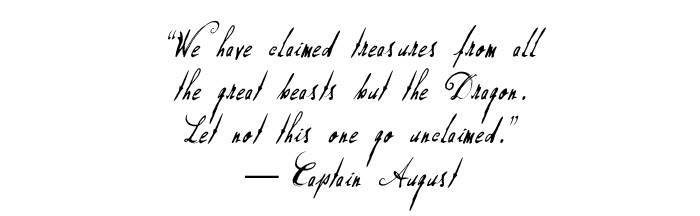 “We have claimed treasures from all
the great beasts but the Dragon.
Let not this one go unclaimed.”
— Captain August